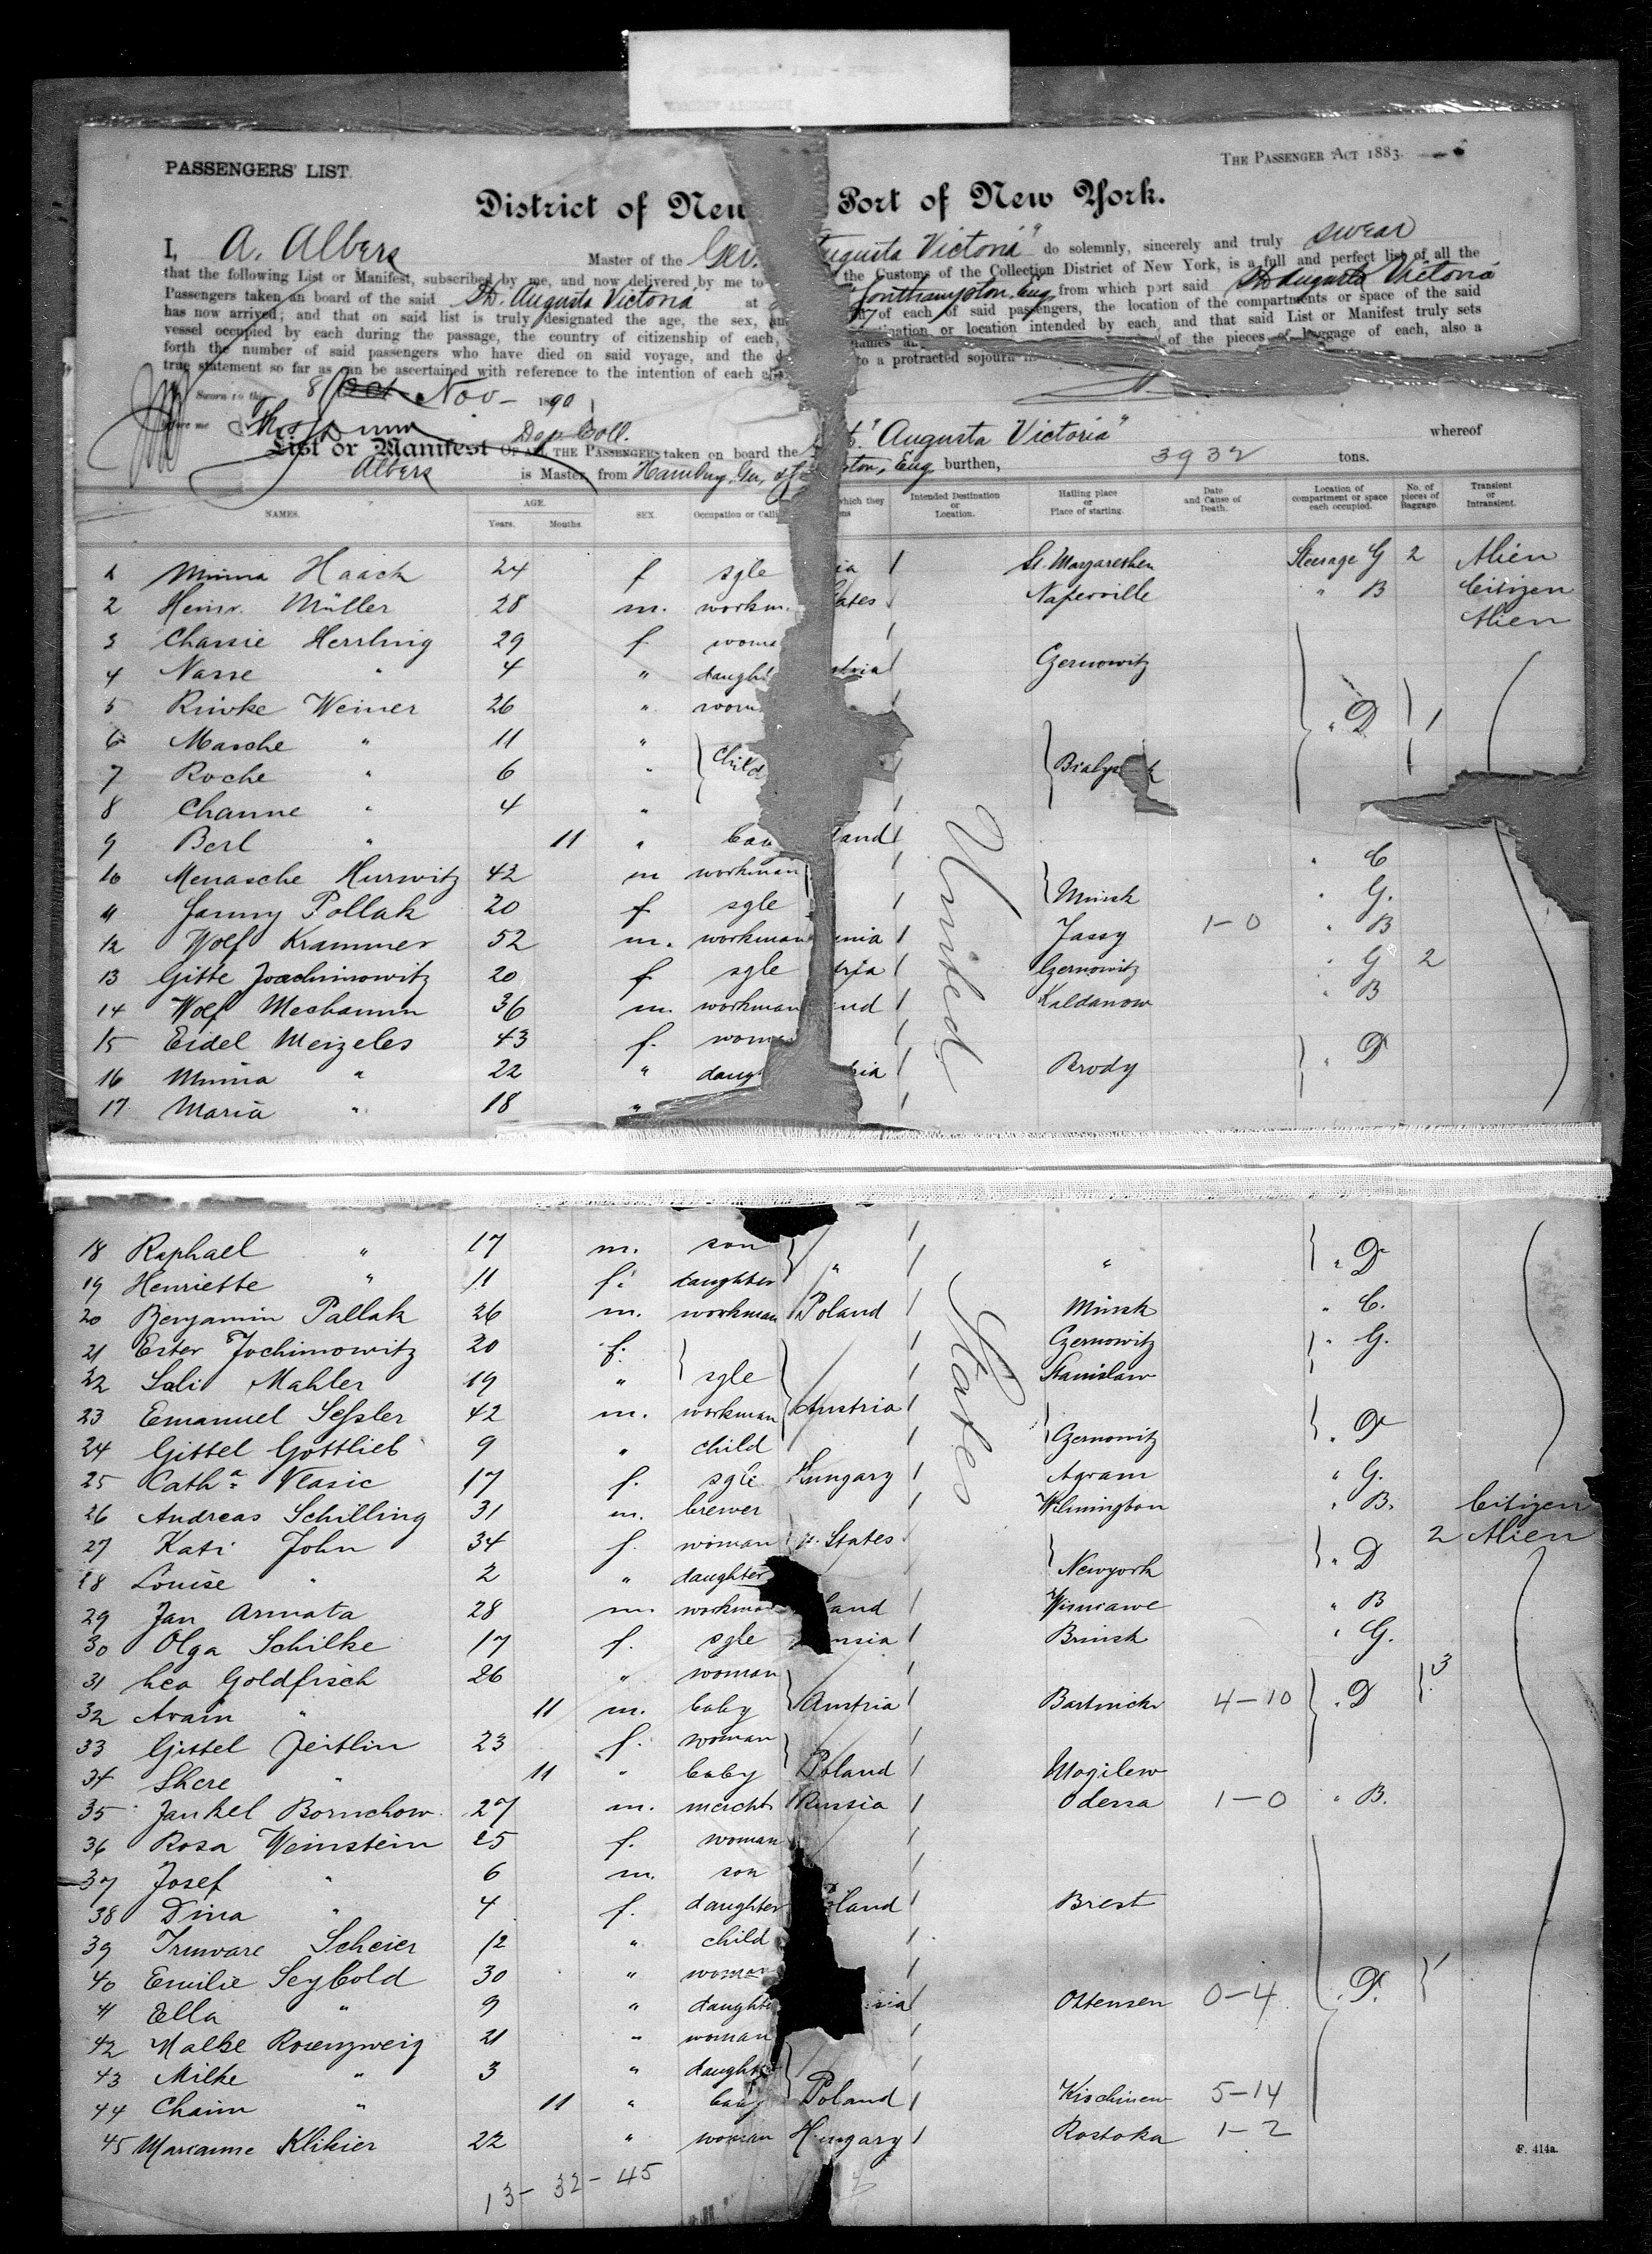 PASSENGERS' LIST.
THE PASSENGER ACT 1883.
District of New Port of New York.
I, A. Albers Master of the Ger. Augusta Victoria" do solemnly, sincerely and truly swear
that the following List or Manifest, subscribed by me, and now delivered by me to the Customs of the Collection District of New York, is a full and perfect list of all the
Passengers taken on board of the said St. Augusta Victoria at Southampton, Eng. from which port said St. Augusta Victoria
has now arrived; and that on said list is truly designated the age, the sex, of each of said passengers, the location of the compartments or space of the said
vessel occupied by each during the passage, the country of citizenship of each, destination or location intended by each, and that said List or Manifest truly sets
forth the number of said passengers who have died on said voyage, and the names of the pieces of baggage of each, also a
true statement so far as can be ascertained with reference to the intention of each to a protracted sojourn
Sworn to this 8 Oct Nov- 1890
before me
Dep Coll.
List or Manifest OF ALL THE PASSENGERS taken on board the St. "Augusta Victoria" whereof
Albers is Master, from Hamburg, Ger, Eng. burthen, 3932 tons.
NAMES. AGE. Years. Months. SEX. Occupation or Calling which they Intended Destination or Location. Hailing place or Place of starting. Date and Cause of Death. Location of compartment or space each occupied. No. of pieces of Baggage. Transient or Intransient.
1 Minna Haack 24 f sgle ia / St. Margarethen Steerage G 2 Alien
2 Heinr. Müller 28 m. workm. States / Naperville " B Citizen
3 Chassie Herrling 29 f. woma / Alien
4 Nasse " 4 " daught stria / Czernowitz
5 Riwke Weiner 26 " wom / " D 1
6 Masche " 11 "
7 Roche " 6 " Child / Bialys k
8 Channe " 4 " /
9 Berl " 11 " bab land /
10 Menasche Hurwitz 42 m workman / " C
11 Janny Pollak 20 f sgle / Minsk " G.
12 Wolf Krammer 52 m. workman nia / Jassy 1-0 " B
13 Gitte Joachimowitz 20 f sgle tria / Czernowitz " G 2
14 Wolf Meshamm 36 m. workman nd / Kaldanow " B
15 Eidel Meizeles 43 f. woma / " D
16 Minna " 22 " daug ria / Brody
17 Maria " 18 " /
United
18 Raphael " 17 m. son / " " D
19 Henriette " 11 f. daughter " /
20 Benjamin Pallak 26 m. workman Poland / Minsk " C.
21 Ester Jochimowitz 20 f. / Czernowitz " G.
22 Sali Mahler 19 " sgle / Stanislaw
23 Emanuel Sessler 42 m. workman Austria /
24 Gittel Gottlieb 9 " child / Czernowitz " D
25 Cath.a Vlasic 17 f. sgle Hungary / Agram " G.
26 Andreas Schilling 31 m. brewer / Wilmington " B. Citizen
27 Kati John 34 f. woman U. States / 2 Alien
28 Louise " 2 " daughter Newyork " D
29 Jan Armata 28 m. workman land / " B
30 Olga Schilke 17 f. sgle ussia / Brinsk " G.
31 Lea Goldfisch 26 " woman / 3
32 Avain " 11 m. baby Austria / 4-10 " D
33 Gittel Zeitlin 23 f. woman /
34 Shere " 11 " baby Poland / Mogilew
35 Jankel Bornchow 27 m. mercht Russia / Odessa 1-0 " B.
36 Rosa Weinstein 25 f. woman /
37 Josef " 6 m. son /
38 Dina " 4 f. daughter land / Brest
39 Scheier 12 " child /
40 Emilie Seybold 30 " woman /
41 Ella " 9 " daughte sia / Ottensen 0-4 " D. 1
42 Malke Rosenzweig 21 " woman /
43 Milke " 3 " daughter /
44 Chaim " 11 " baby Poland / Kischinew 5-14
45 Marianne Klikier 22 " woman Hungary / Rostoka 1-2
States
13- 32- 45
F. 414a.